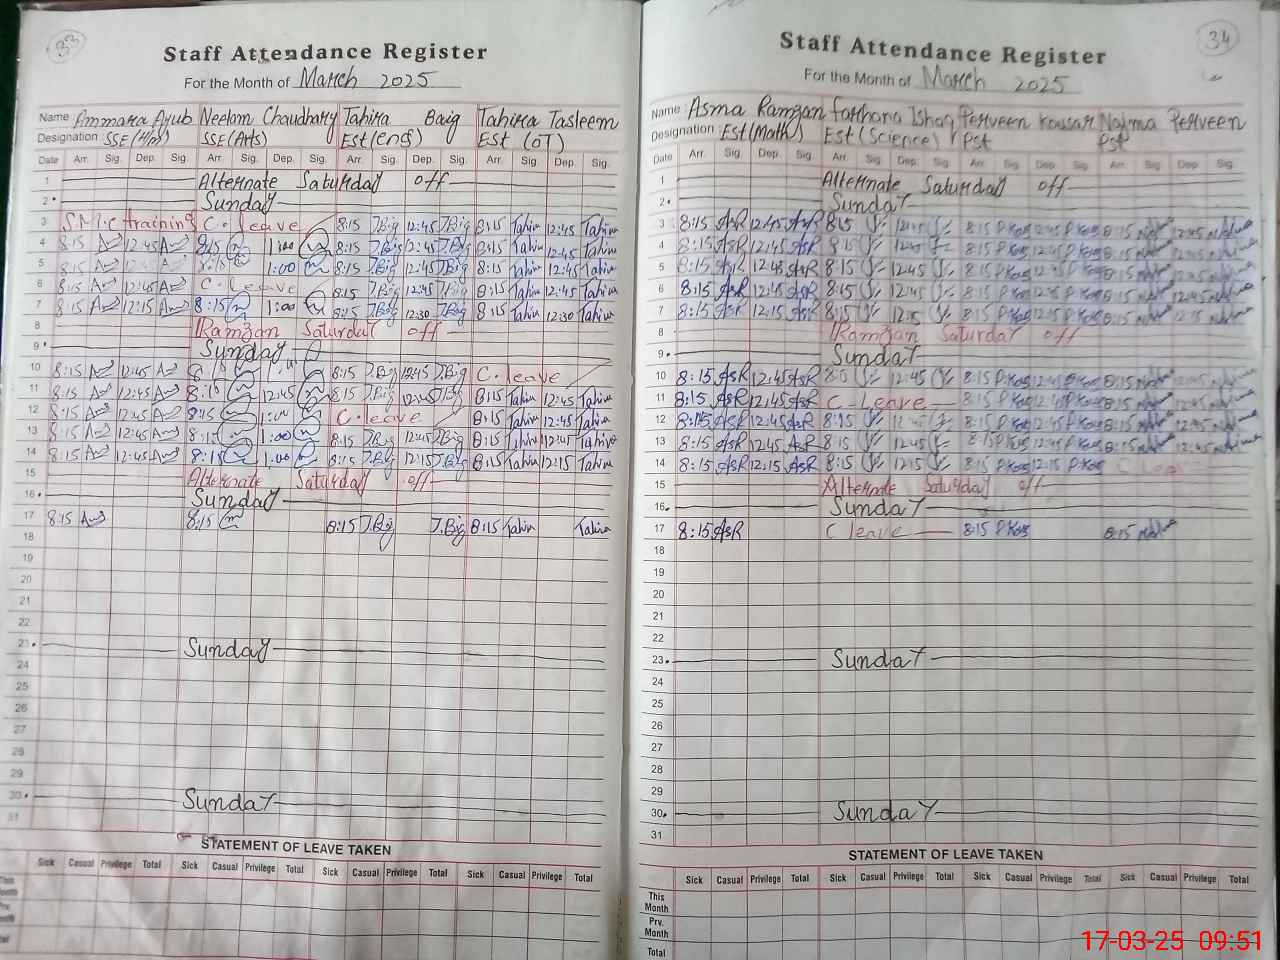 33
Staff Attendance Register
For the Month of March 2025
Name Ammara Ayub Neelam Chaudhary Tahira Baig Tahira Tasleem
Designation SSE(H/M) SSE(Arts) Est(eng) Est (OT)
Date Arr. Sig. Dep. Sig. Arr. Sig. Dep. Sig. Arr. Sig. Dep. Sig. Arr. Sig. Dep. Sig.
1 Alternate Saturday off
2 Sunday
3 S.M.C training C. leave 8:15 T.Big 12:45 T.Big 8:15 Tahira 12:45 Tahira
4 8:15 12:45 8:15 1:00 8:15 T.Big 12:45 T.Big 8:15 Tahira 12:45 Tahira
5 8:15 1:00 8:15 T.Big 12:45 T.Big 8:15 Tahira 12:45 Tahira
6 8:15 12:45 C. Leave 8:15 T.Big 12:45 T.Big 8:15 Tahira 12:45 Tahira
7 8:15 12:15 8:15 1:00 8:15 T.Big 12:30 T.Big 8:15 Tahira 12:30 Tahira
8 Ramzan Saturday off
9 Sunday
10 8:15 12:45 8:15 T.Big T.Big C. leave
11 8:15 12:45 8:15 12:45 8:15 T.Big 12:45 T.Big 8:15 Tahira 12:45 Tahira
12 8:15 12:45 8:15 1:00 C. leave 8:15 Tahira 12:45 Tahira
13 8:15 12:45 8:15 1:00 8:15 T.Big 12:45 T.Big 8:15 Tahira 12:45 Tahira
14 8:15 12:15 8:15 1:00 8:15 T.Big 12:15 T.Big 8:15 Tahira 12:15 Tahira
15 Alternate Saturday off
16 Sunday
17 8:15 8:15 8:15 T.Big T.Big 8:15 Tahira Tahira
18
19
20
21
22
23 Sunday
24
25
26
27
28
29
30 Sunday
31
STATEMENT OF LEAVE TAKEN
Sick Casual Privilege Total Sick Casual Privilege Total Sick Casual Privilege Total Sick Casual Privilege Total
This Month
Prv. Month
Total
34
Staff Attendance Register
For the Month of March 2025
Name Asma Ramzan Farhana Ishaq Perveen Kousar Najma Perveen
Designation Est(Math) Est(Science) Pst Pst
Date Arr. Sig. Dep. Sig. Arr. Sig. Dep. Sig. Arr. Sig. Dep. Sig. Arr. Sig. Dep. Sig.
1 Alternate Saturday off
2 Sunday
3 8:15 AsR 12:45 AsR 8:15 12:45 8:15 P.Kos 12:45 P.Kos 8:15 12:45
4 8:15 AsR 12:45 AsR 8:15 12:45 8:15 P.Kos 12:45 P.Kos 8:15
5 8:15 AsR 12:45 AsR 8:15 12:45 8:15 P.Kos 12:45 P.Kos 8:15 12:45
6 8:15 AsR 12:45 AsR 8:15 12:45 8:15 P.Kos 12:45 P.Kos 8:15 12:45
7 8:15 AsR 12:15 AsR 8:15 12:15 8:15 P.Kos 12:15 P.Kos 8:15 12:15
8 Ramzan Saturday off
9 Sunday
10 8:15 AsR 12:45 AsR 12:45 8:15 P.Kos 12:45 P.Kos 8:15 12:45
11 8:15 AsR 12:45 AsR C - Leave 8:15 P.Kos 12:45 P.Kos 8:15 12:45
12 8:15 AsR 12:45 AsR 8:15 8:15 P.Kos 12:45 P.Kos 8:15 12:45
13 8:15 AsR 12:45 AsR 8:15 12:45 8:15 P.Kos 12:45 P.Kos 8:15 12:45
14 8:15 AsR 12:15 AsR 8:15 12:15 8:15 P.Kos 12:15 P.Kos C Leave
15 Alternate Saturday off
16 Sunday
17 8:15 AsR C leave 8:15 P.Kos 8:15
18
19
20
21
22
23 Sunday
24
25
26
27
28
29
30 Sunday
31
STATEMENT OF LEAVE TAKEN
Sick Casual Privilege Total Sick Casual Privilege Total Sick Casual Privilege Total Sick Casual Privilege Total
This Month
Prv. Month
Total
17-03-25 09:51